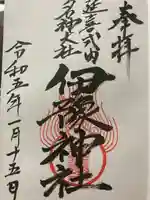 奉拝
延喜式内
神社
伊 神社
令和五年一月十五日